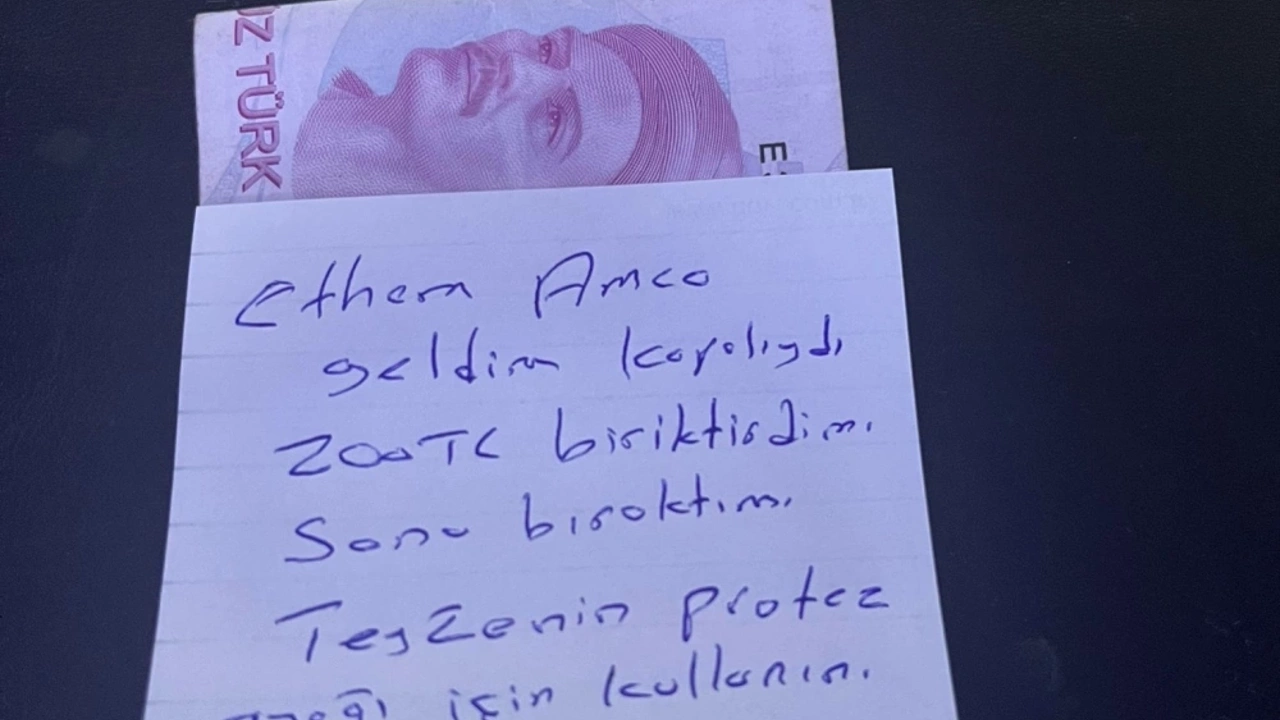 ÜZ TÜRK
E
Ethem Amca
geldim kapalıydı
200TL biriktirdim.
Sana bıraktım.
Teyzenin protez
ayağı için kullanın.